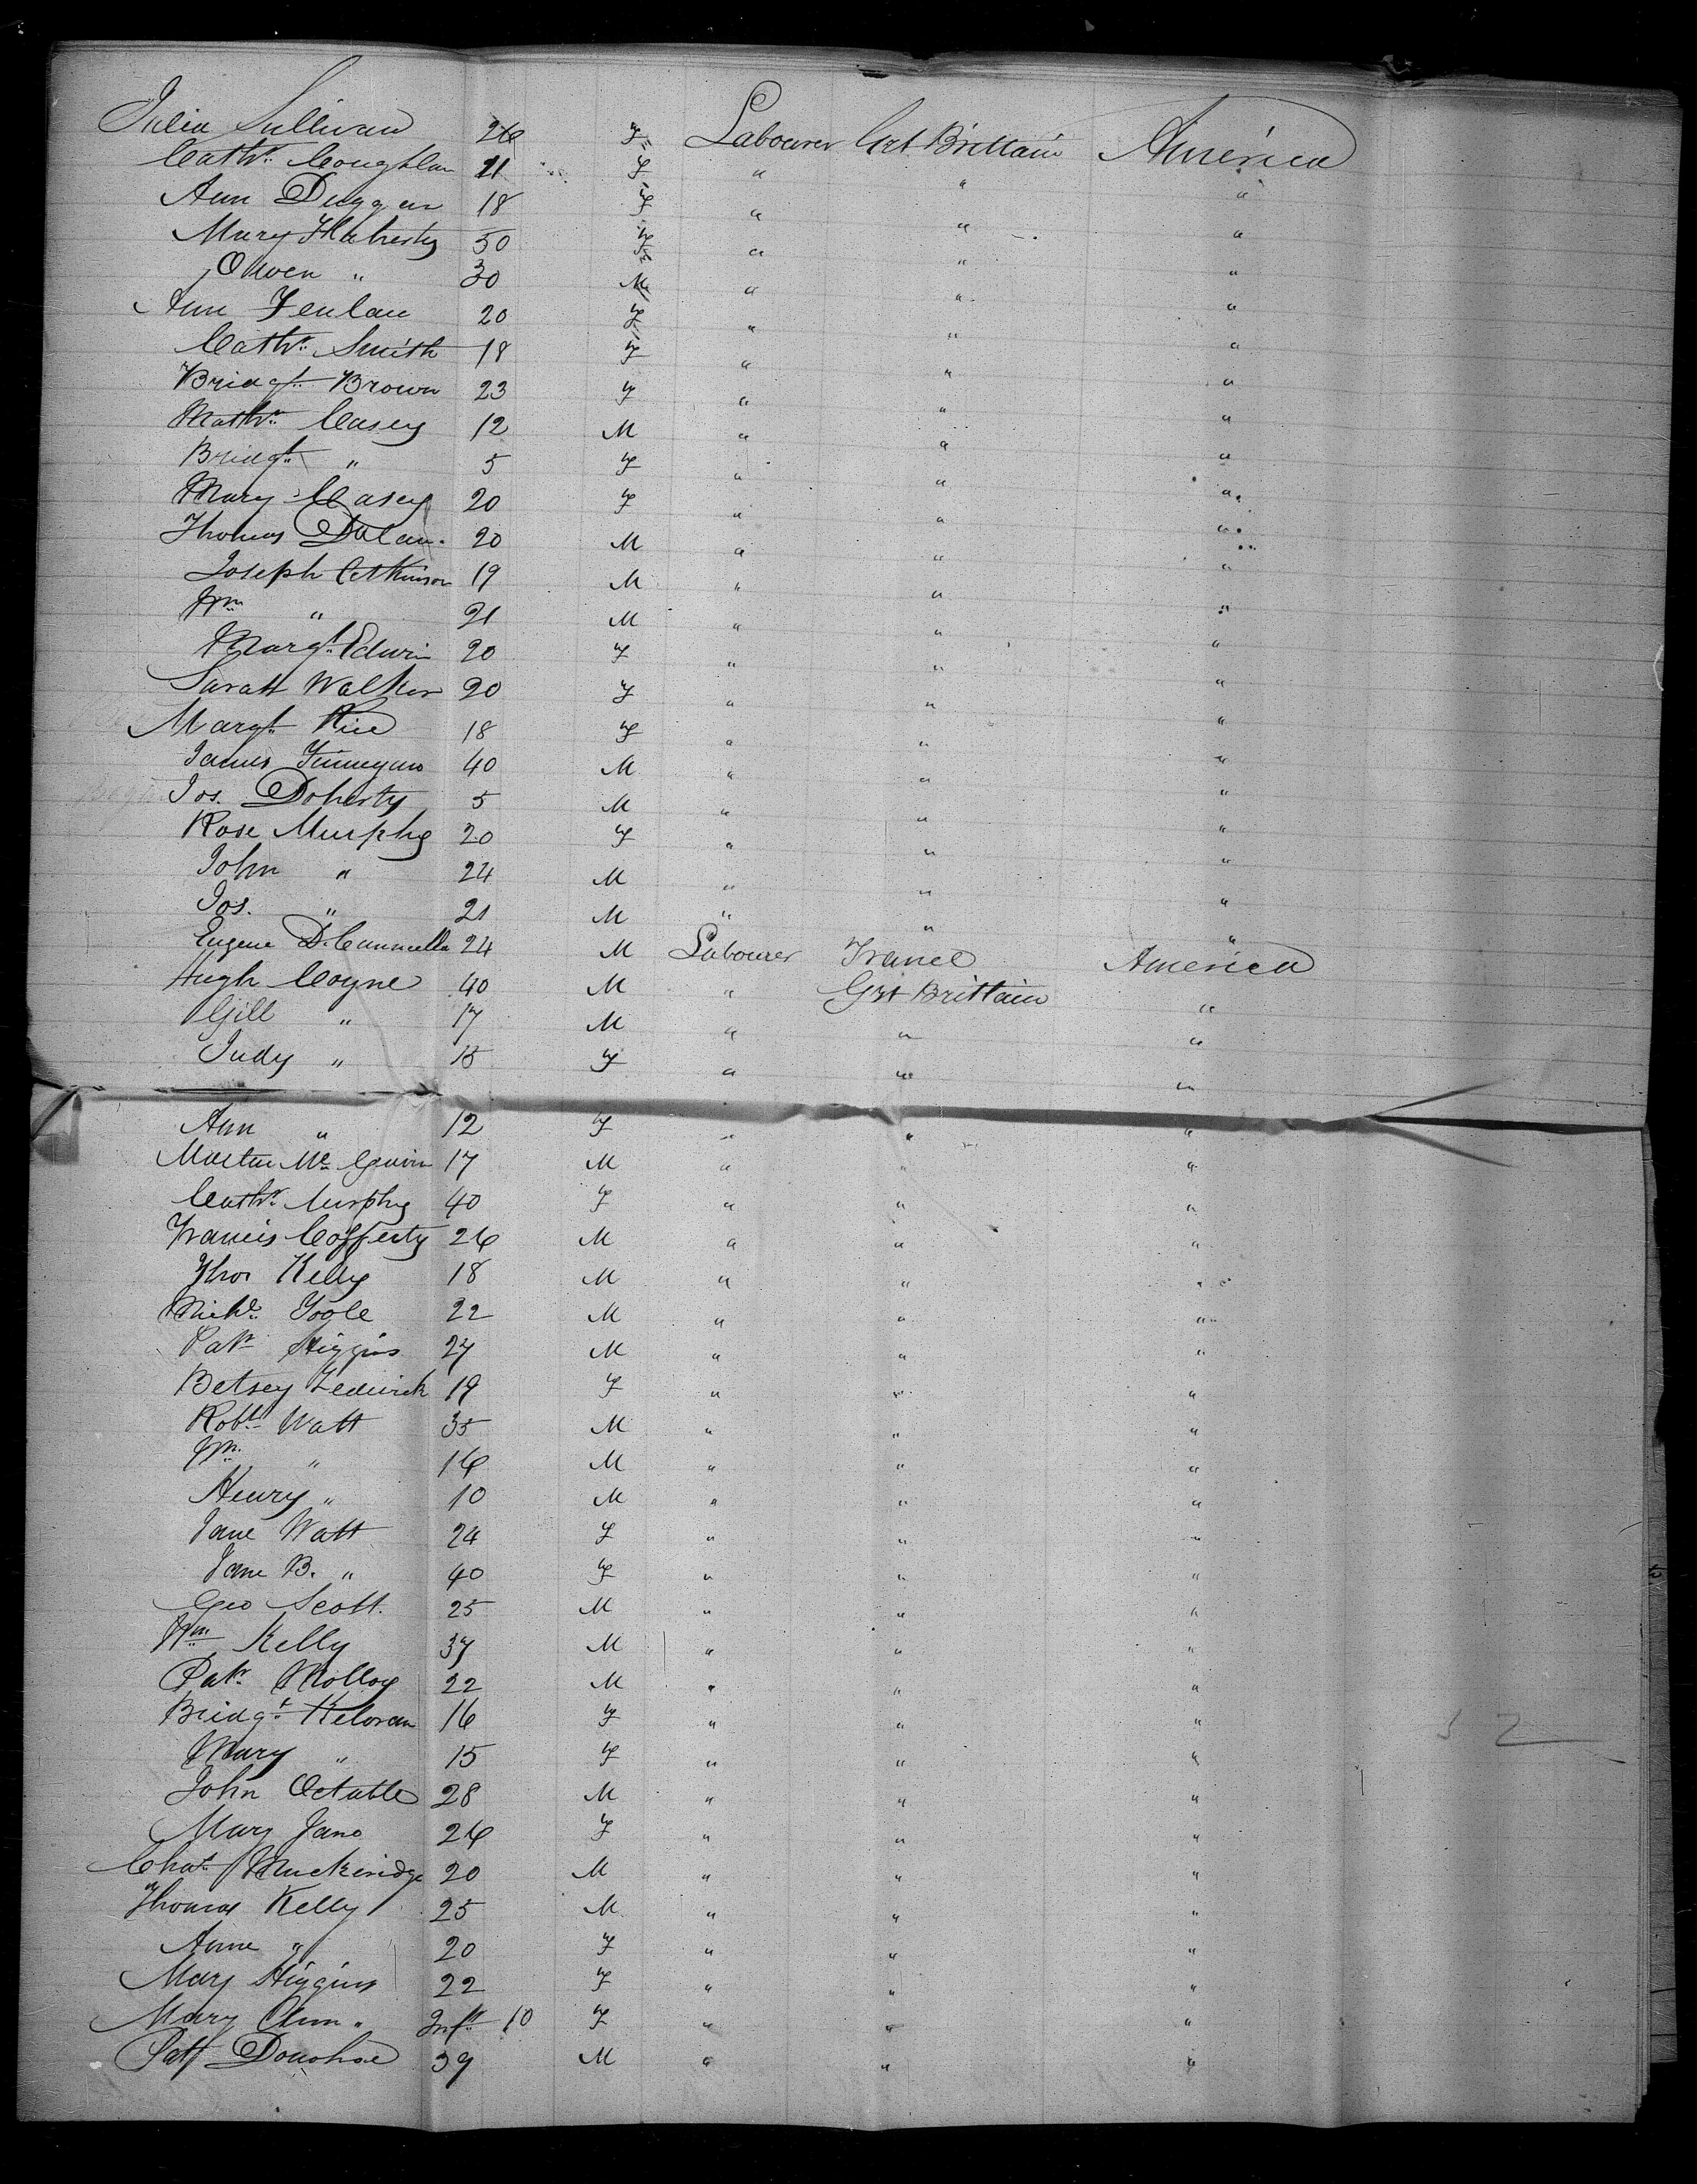 Julia Sullivan 26 F Labourer Grt Brittain America
Cathr. Coughlan 21 F " " "
Ann Duggan 18 F " " "
Mary Flaherty 50 F " " "
Owen " 30 M " " "
Ann Fenlan 20 F " " "
Cathr. Smith 18 F " " "
Bridgt. Brown 23 F " " "
Mathw. Casey 12 M " " "
Bridgt. " 5 F " " "
Mary Casey 20 F " " "
Thomas Dolan 20 M " " "
Joseph Atkinson 19 M " " "
Wm. " 21 M " " "
Margt. Edwin 20 F " " "
Sarah Walker 20 F " " "
Margt. Rice 18 F " " "
James Finnegan 40 M " " "
Jos. Doherty 5 M " " "
Rose Murphy 20 F " " "
John " 24 M " " "
Jos. " 21 M " " "
Eugene 24 M Labourer France America
Hugh Coyne 40 M " Grt Brittain "
Gill " 17 M " " "
Judy " 15 F " " "
Ann " 12 F " " "
Martin Mc Gavin 17 M " " "
Cathr. Murphy 40 F " " "
Francis Cafferty 26 M " " "
Thos Kelly 18 M " " "
Michl. Toole 22 M " " "
Patk. Higgins 27 M " " "
Betsey Ledwick 19 F " " "
Robt. Watt 35 M " " "
Wm. " 16 M " " "
Henry " 10 M " " "
Jane Watt 24 F " " "
Jane B. " 40 F " " "
Geo Scott. 25 M " " "
Wm. Kelly 37 M " " "
Patk. Molloy 22 M " " "
Bridgt. Keloran 16 F " " "
Mary " 15 F " " "
John Octable 28 M " " "
Mary Jane 26 F " " "
Chas. Muckeridge 20 M " " "
Thomas Kelly 25 M " " "
Anne " 20 F " " "
Mary Higgins 22 F " " "
Mary Ann " Inft. 10 F " " "
Patt Donohoe 39 M " " "